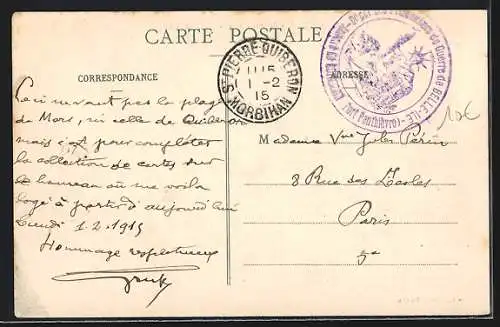 CARTE POSTALE
CORRESPONDANCE
ADRESSE
St PIERRE-QUIBERON
1-2
15
MORBIHAN
Guerre de BELLE-ILE
Fort Penthièvre
10€
Ceci n'étant pas la plage
de Mars, ni celle de Quiberon
mais c'est pour compléter
la collection de cartes sur
le hameau où me voilà
logé à partir d'aujourd'hui
Lundi 1.2.1915
Hommage respectueux
Madame Vve Jules Périn
8 Rue des Ecoles
Paris
5e